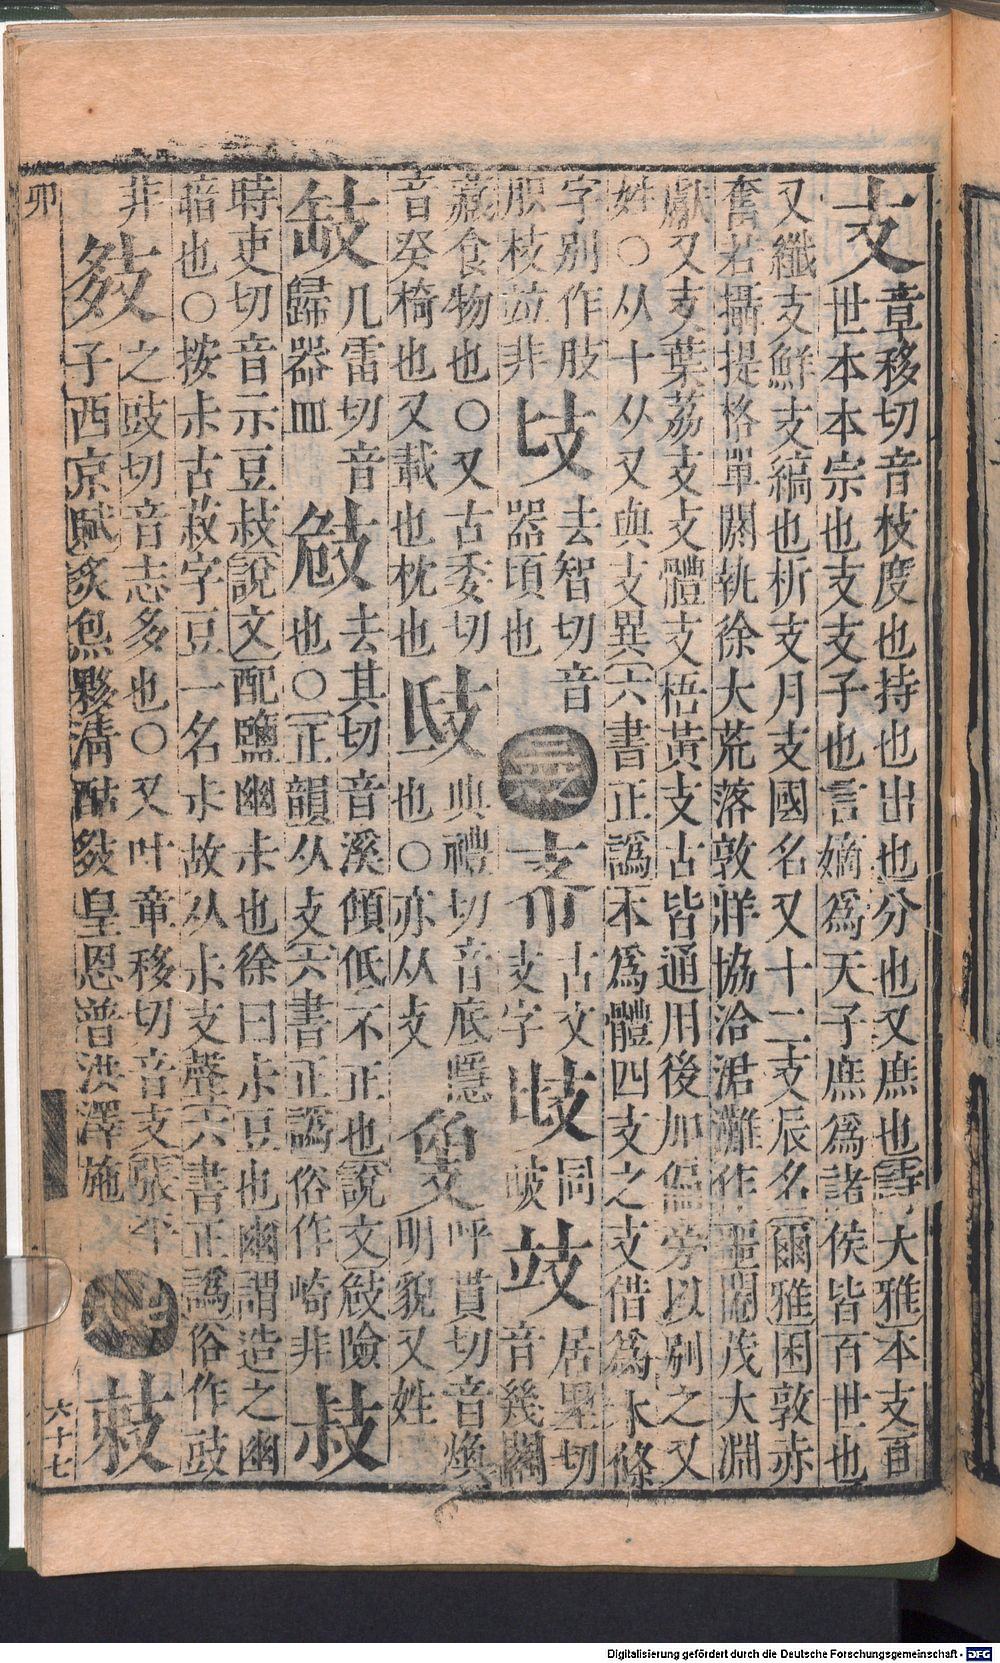 支 章移切音枝度也持也出也分也又庶也詩大雅本支百
世本本宗也支支子也言嫡爲天子庶爲諸侯皆百世也
又纖支鮮支縞也析支月支國名又十二支辰名爾雅困敦赤
奮若攝提格單閼執徐大荒落敦牂協洽涒灘作噩閹茂大淵
獻又支葉荔支支體支梧黃支古皆通用後加偏旁以別之又
姓○从十从又與攴異六書正譌木爲體四支之支借爲木條
字別作肢
胑枝竝非
𠦬 去智切音
器頃也
古文
支字
歧 同
岐
攱 居里切
音幾閣
藏食物也○又古委切
音癸椅也又載也枕也
典禮切音底隱
也○亦从攴
呼貫切音煥
明貌又姓
几雷切音
歸器皿
攲 去其切音溪傾低不正也說文攲險
也○正韻从攴六書正譌俗作崎非
敊
時吏切音示豆敊說文配鹽幽尗也徐曰尗豆也幽謂造之幽
暗也○按尗古菽字豆一名尗故从尗支聲六書正譌俗作豉
非
之豉切音志多也○又叶章移切音支張平
子西京賦炙炰夥淸酤㩼皇恩普洪澤施
卯
六十七
Digitalisierung gefördert durch die Deutsche Forschungsgemeinschaft - DFG